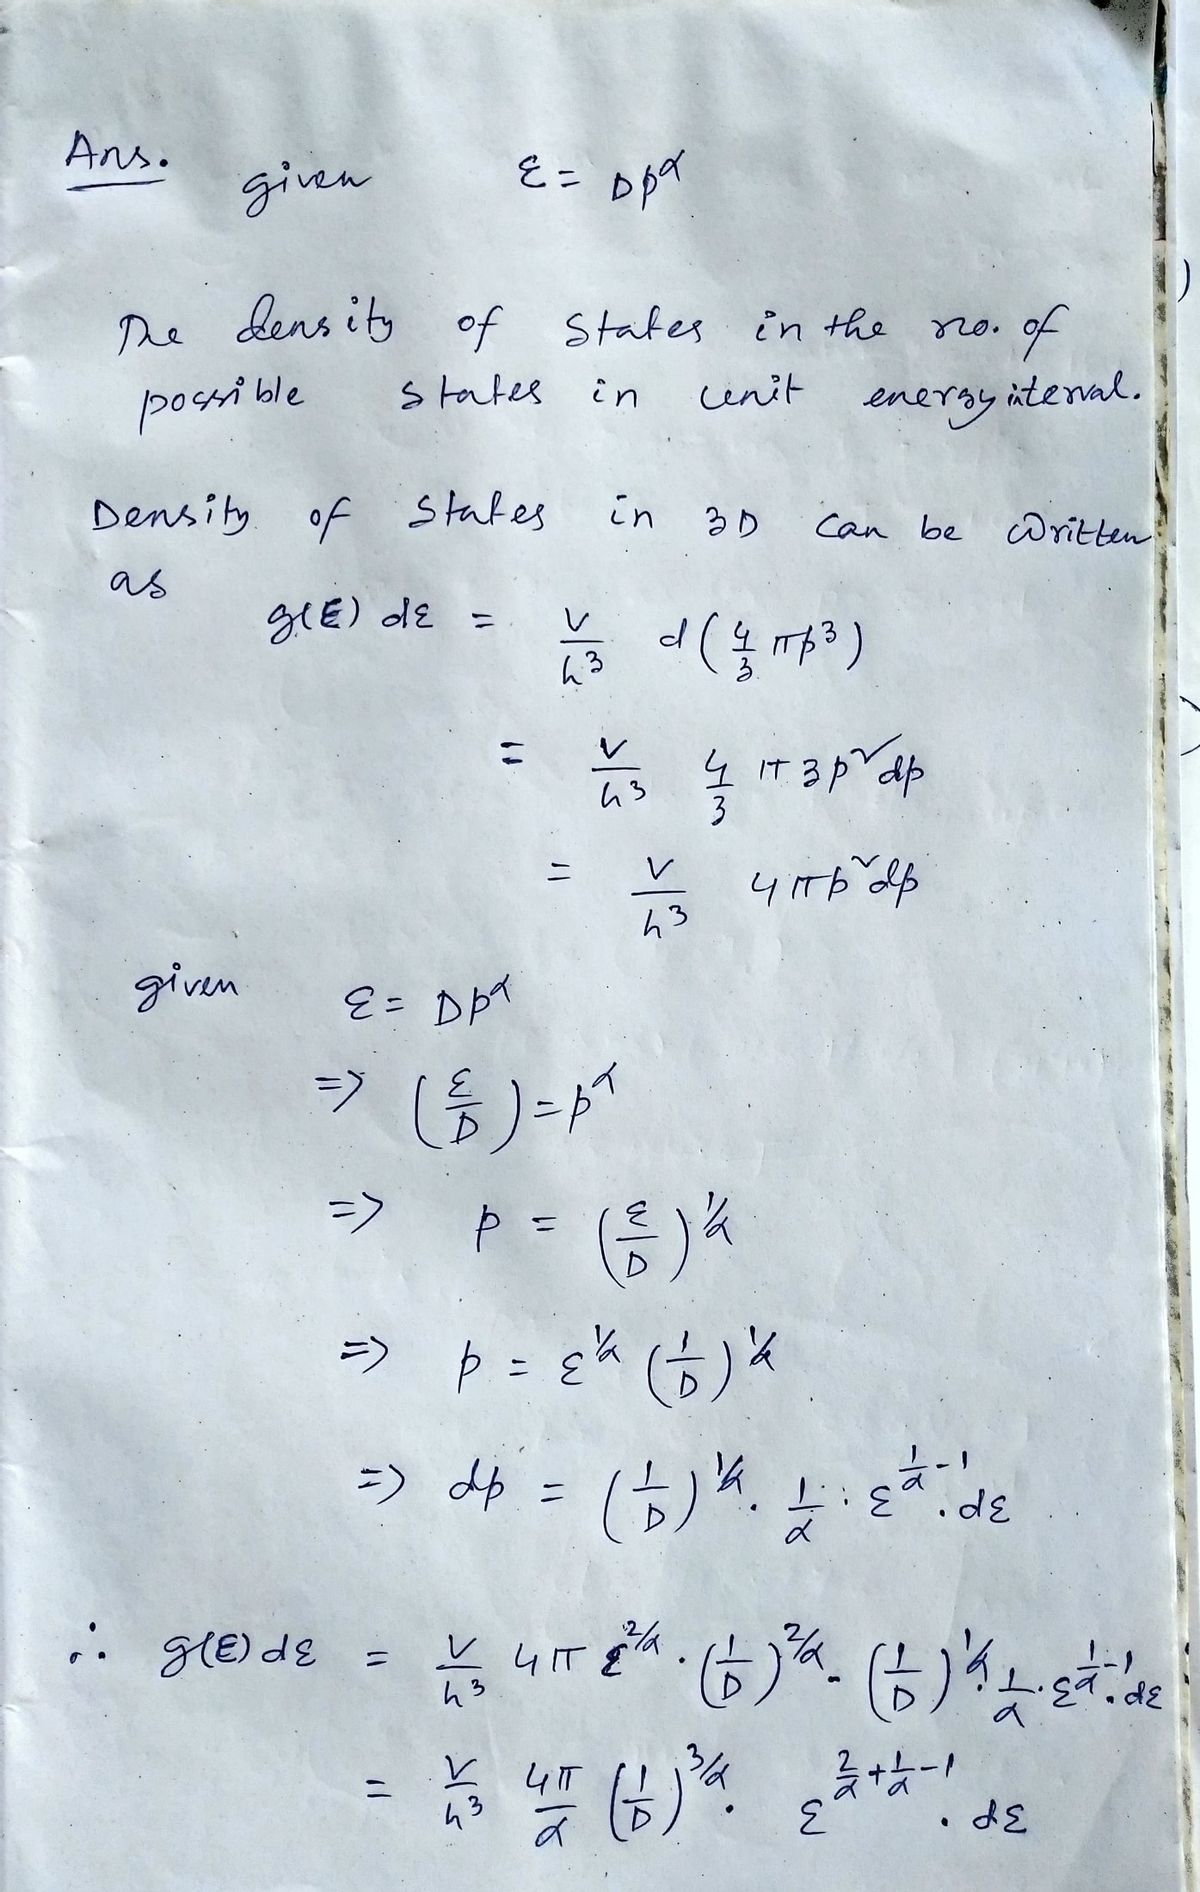 Ans.
given ε = Dp^α
The density of states in the no. of
possible states in unit energy interval.
Density of states in 3D can be written
as
g(E) dε = V/h³ d(4/3 πp³)
= V/h³ 4/3 π 3p² dp
= V/h³ 4πp² dp
given ε = Dp^α
=> (ε/D) = p^α
=> p = (ε/D)^1/α
=> p = ε^1/α (1/D)^1/α
=> dp = (1/D)^1/α . 1/α . ε^(1/α - 1) . dε
∴ g(E) dε = V/h³ 4π ε^2/α . (1/D)^2/α . (1/D)^1/α . 1/α . ε^(1/α - 1) . dε
= V/h³ 4π/α (1/D)^3/α . ε^(2/α + 1/α - 1) . dε